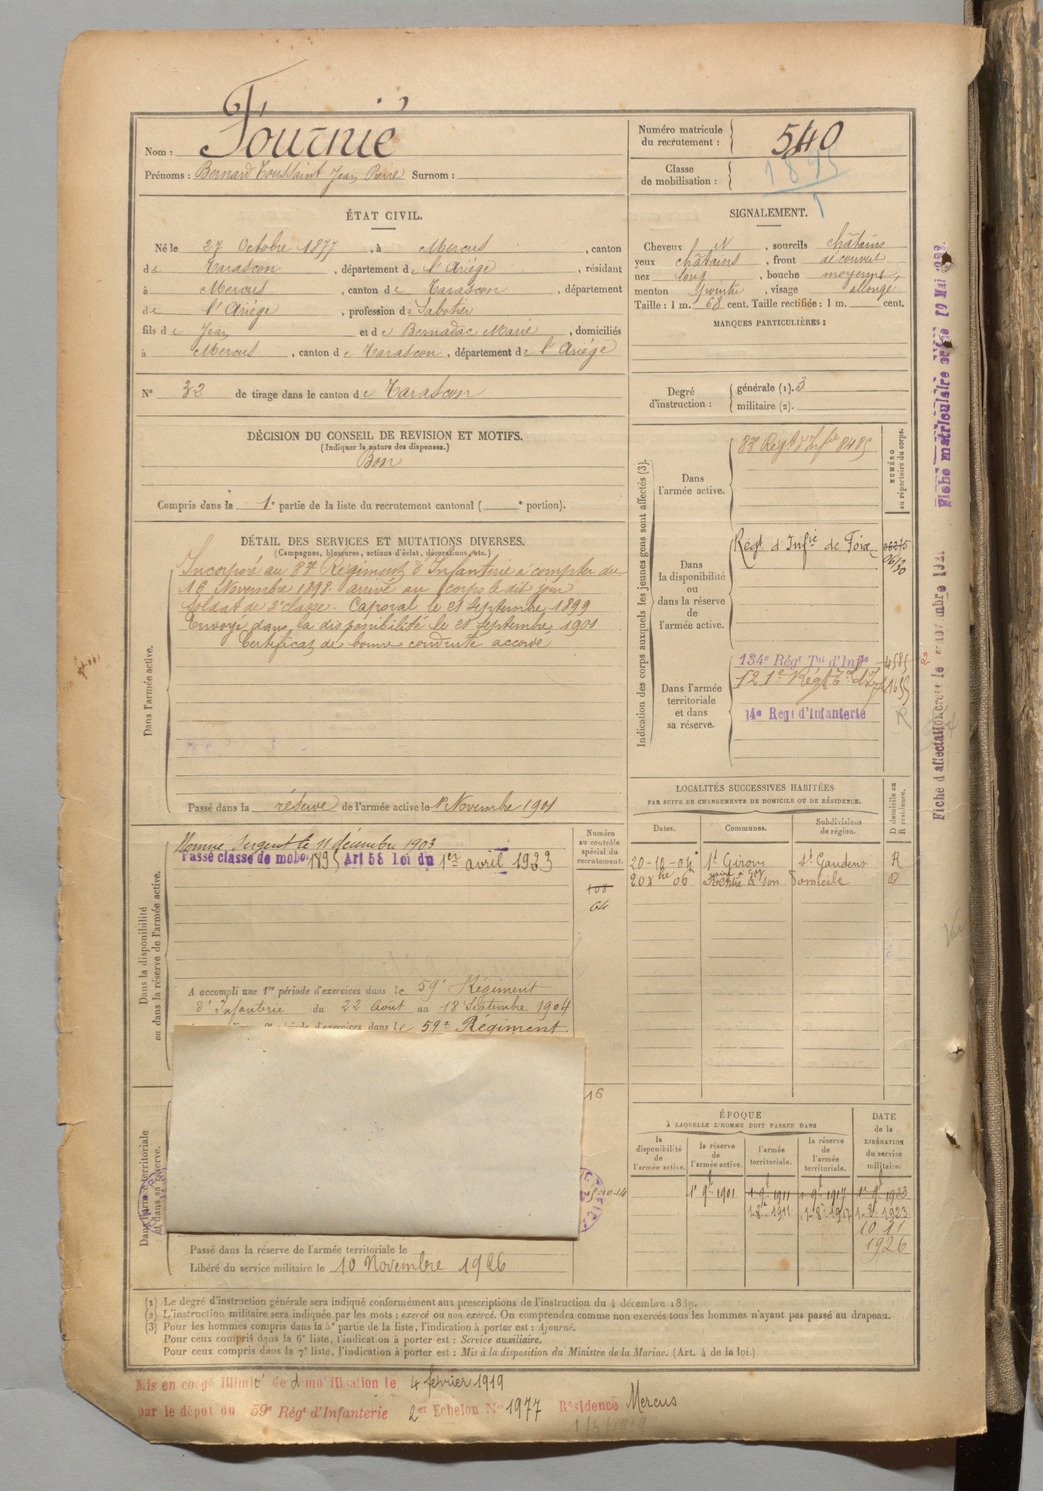 Nom : Fournié
Prénoms : Bernard Toussaint Jean Pierre Surnom :
Numéro matricule du recrutement : 540
Classe de mobilisation : 1895
ÉTAT CIVIL.
Né le 27 Octobre 1877, à Mercus, canton
de Tarascon, département de l'Ariège, résidant
à Mercus, canton de Tarascon, département
de l'Ariège, profession de Sabotier
fils de Jean et de Bernadac Marie, domiciliés
à Mercus, canton de Tarascon, département de l'Ariège
N° 32 de tirage dans le canton de Tarascon
SIGNALEMENT.
Cheveux N, sourcils châtains
yeux châtains, front découvert
nez long, bouche moyenne,
menton pointu, visage allongé
Taille : 1 m. 68 cent. Taille rectifiée : 1 m. cent.
MARQUES PARTICULIÈRES :
Degré d'instruction : générale (1). 3
militaire (2).
DÉCISION DU CONSEIL DE REVISION ET MOTIFS.
(Indiquer la nature des dispenses.)
Bon
Compris dans la 1e partie de la liste du recrutement cantonal ( e portion).
DÉTAIL DES SERVICES ET MUTATIONS DIVERSES.
(Campagnes, blessures, actions d'éclat, décorations, etc.)
Dans l'armée active.
Incorporé au 87e Régiment d'Infanterie à compter du
16 Novembre 1898. arrivé au corps le dit jour
soldat de 2e classe. Caporal le 28 Septembre 1899
Envoyé dans la disponibilité le 21 septembre 1901
Certificat de bonne conduite accordé
Passé dans la réserve de l'armée active le 1er Novembre 1901
Indication des corps auxquels les jeunes gens sont affectés (3).
NUMÉRO au répertoire du corps.
Dans l'armée active.
87 Régt d'Infie 8485
Dans la disponibilité ou dans la réserve de l'armée active.
Régt d'Infie de Foix
Dans l'armée territoriale et dans sa réserve.
134e Régt Tal d'Infie
14e Régt d'Infanterie
Dans la disponibilité ou dans la réserve de l'armée active.
Nommé Sergent le 11 décembre 1903
Passé classe de mobon 1895 Art 58 loi du 1er avril 1923
Numéro au contrôle spécial du recrutement.
108
64
A accompli une 1re période d'exercices dans le 59e Régiment
d'Infanterie du 22 Août au 18 Septembre 1904
période d'exercices dans le 59e Régiment
LOCALITÉS SUCCESSIVES HABITÉES
PAR SUITE DE CHANGEMENTS DE DOMICILE OU DE RÉSIDENCE.
Dates. Communes. Subdivisions de région. D domicile ou R résidence.
20-10-04 St Girons St Gaudens R
20 8bre 06 Rentré à son Domicile D
Dans l'armée territoriale et dans sa réserve.
16
Passé dans la réserve de l'armée territoriale le
Libéré du service militaire le 10 Novembre 1926
ÉPOQUE
À LAQUELLE L'HOMME DOIT PASSER DANS
la disponibilité de l'armée active.
la réserve de l'armée active.
l'armée territoriale.
la réserve de l'armée territoriale.
DATE de la LIBÉRATION du service militaire.
1er 9bre 1901 1er 9bre 1911 1er 9bre 1917 1er 9bre 1923
1er 8bre 1911 1er 8bre 1917 1er 8bre 1923
10.11
1926
(1) Le degré d'instruction générale sera indiqué conformément aux prescriptions de l'instruction du 4 décembre 1889.
(2) L'instruction militaire sera indiquée par les mots : exercé ou non exercé. On comprendra comme non exercés tous les hommes n'ayant pas passé au drapeau.
(3) Pour les hommes compris dans la 5e partie de la liste, l'indication à porter est : Ajourné.
Pour ceux compris dans la 6e liste, l'indication à porter est : Service auxiliaire.
Pour ceux compris dans la 7e liste, l'indication à porter est : Mis à la disposition du Ministre de la Marine. (Art. 4 de la loi.)
Mis en congé illimité de démobilisation le 4 février 1919
par le dépôt du 59e Régt d'Infanterie 2me Echelon N° 1977 Résidence Mercus
Fiche matriculaire
Fiche d'affectation